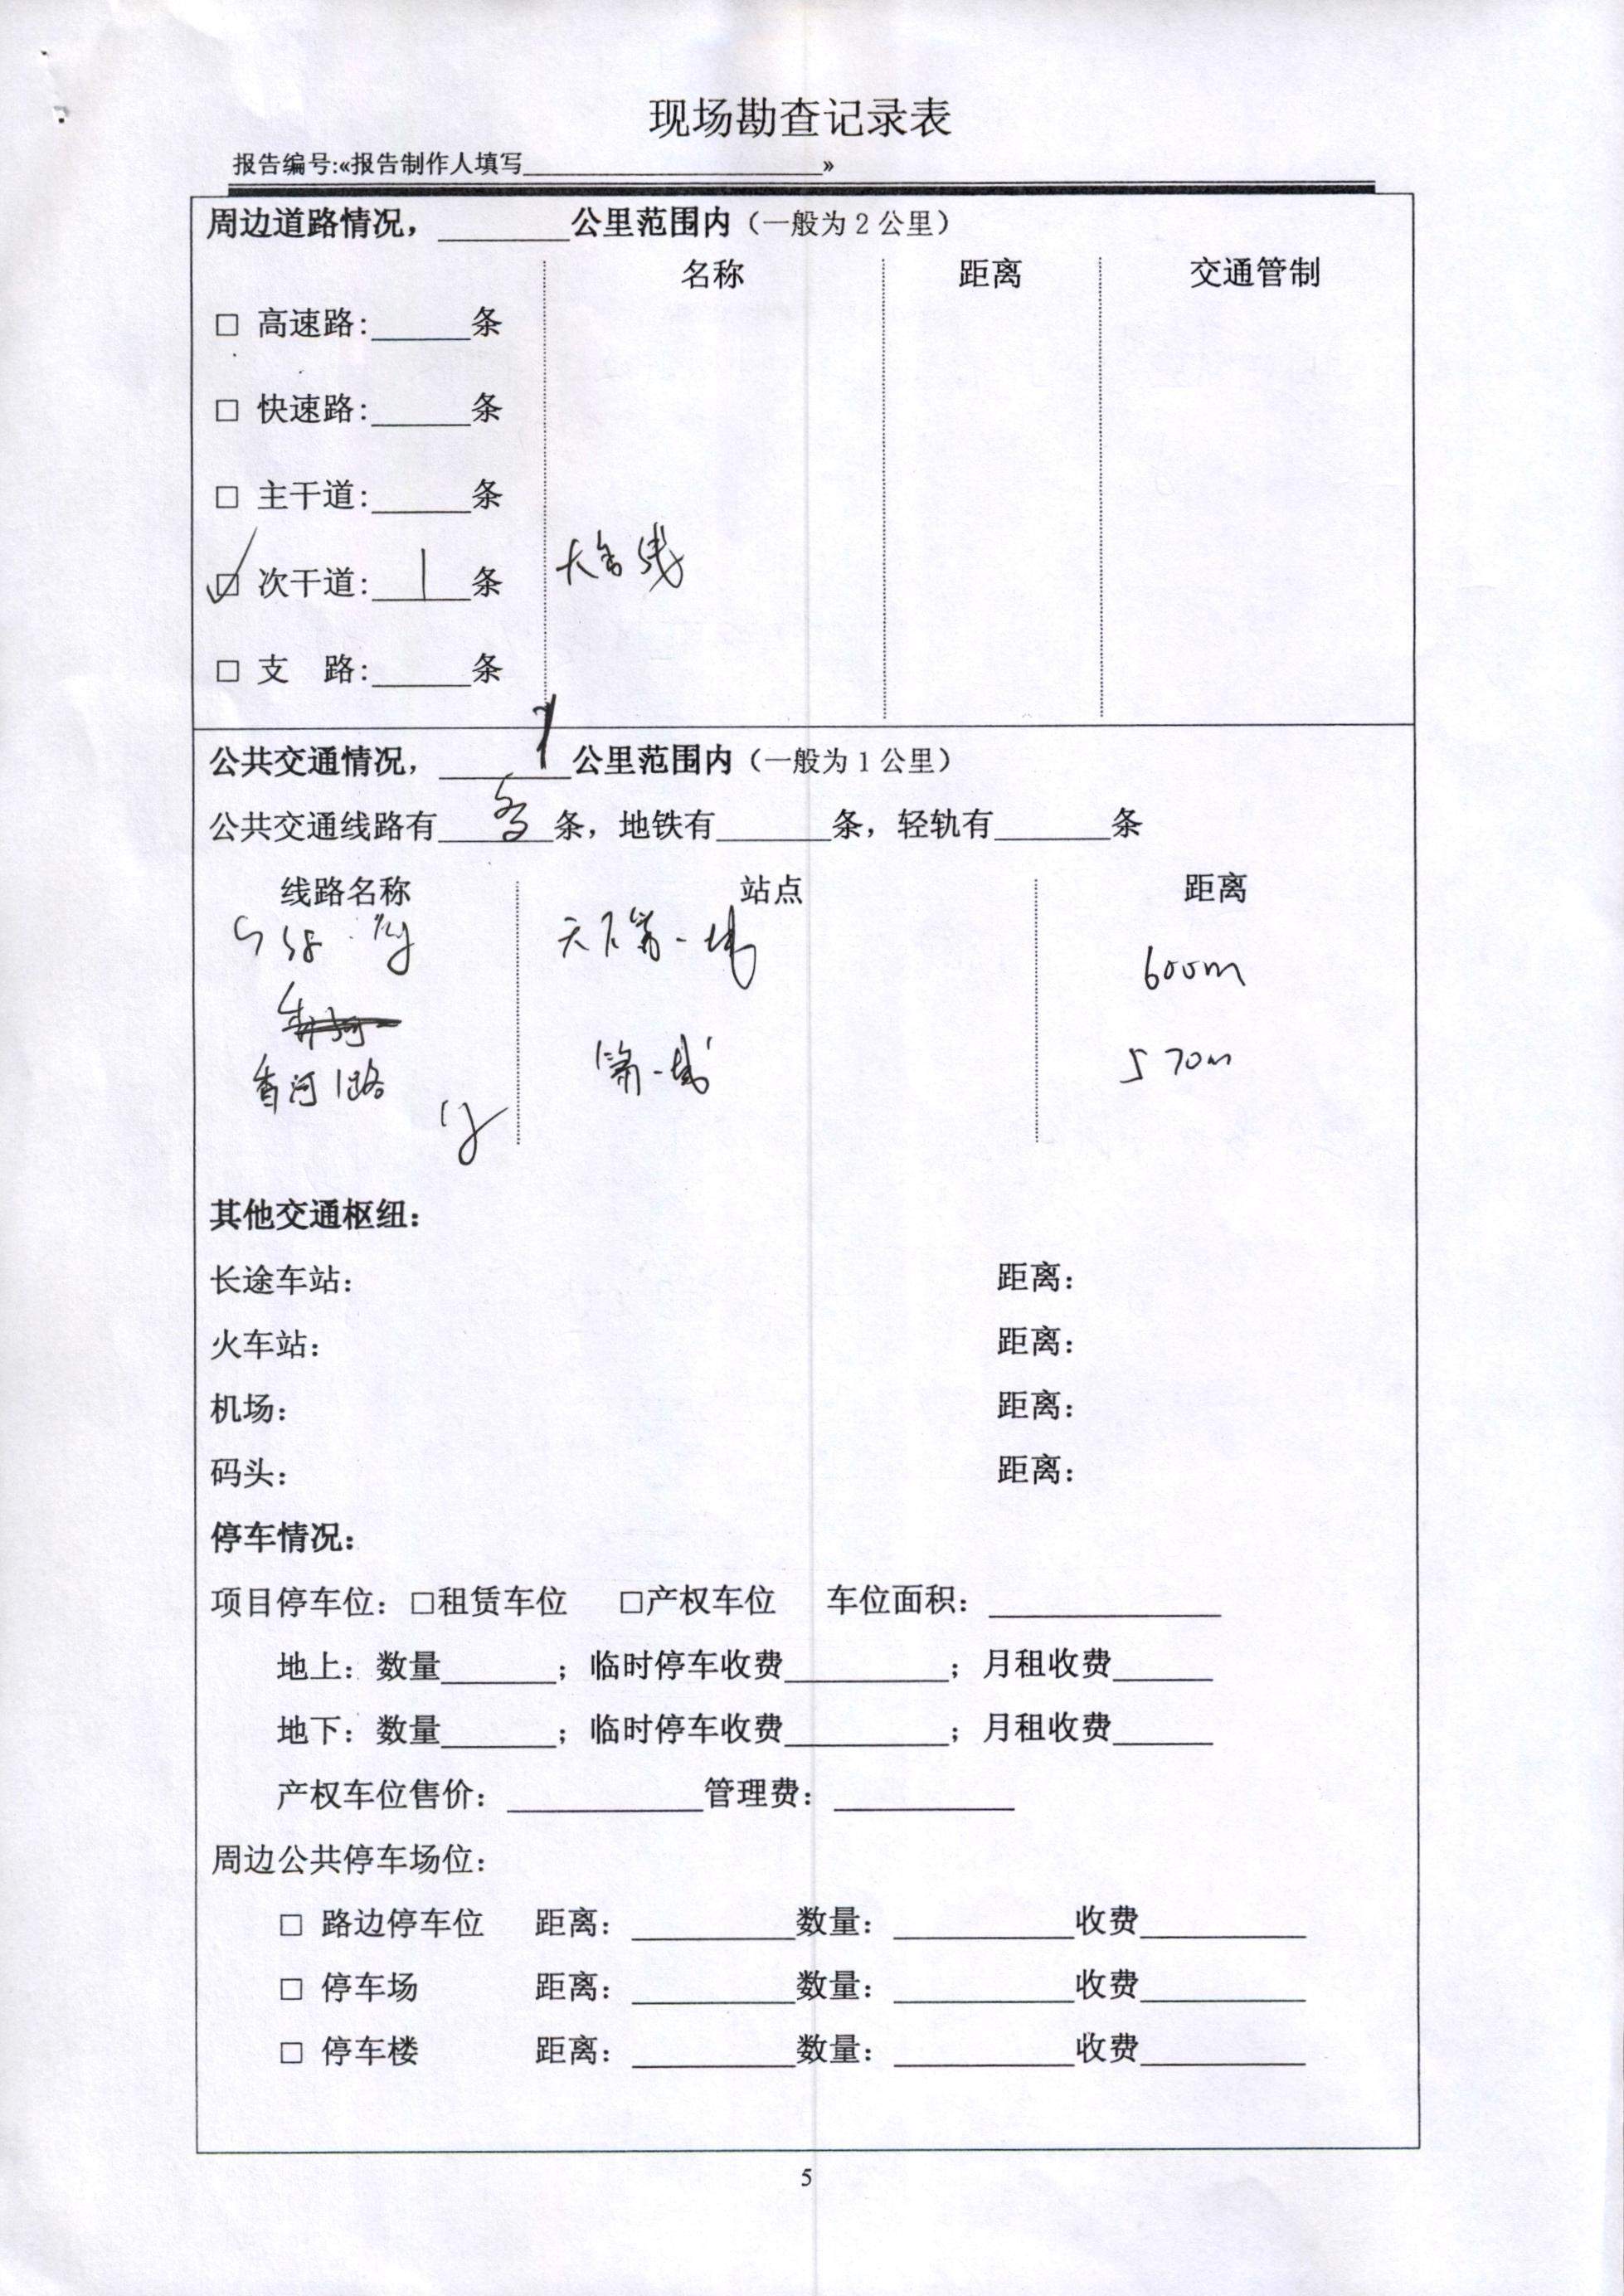 现场勘查记录表
报告编号:«报告制作人填写__________________»
周边道路情况，________公里范围内（一般为2公里）
名称 距离 交通管制
□ 高速路:______条
□ 快速路:______条
□ 主干道:______条
☑ 次干道:___1___条 大香线
□ 支 路:______条
公共交通情况，____1____公里范围内（一般为1公里）
公共交通线路有___多___条，地铁有_______条，轻轨有_______条
线路名称 站点 距离
938 天下第一城 600m
香河1路 第一城 570m
其他交通枢纽：
长途车站： 距离：
火车站： 距离：
机场： 距离：
码头： 距离：
停车情况：
项目停车位：□租赁车位 □产权车位 车位面积：______________
地上：数量_______；临时停车收费__________；月租收费______
地下：数量_______；临时停车收费__________；月租收费______
产权车位售价：____________管理费：___________
周边公共停车场位：
□ 路边停车位 距离：__________数量：___________收费__________
□ 停车场 距离：__________数量：___________收费__________
□ 停车楼 距离：__________数量：___________收费__________
5